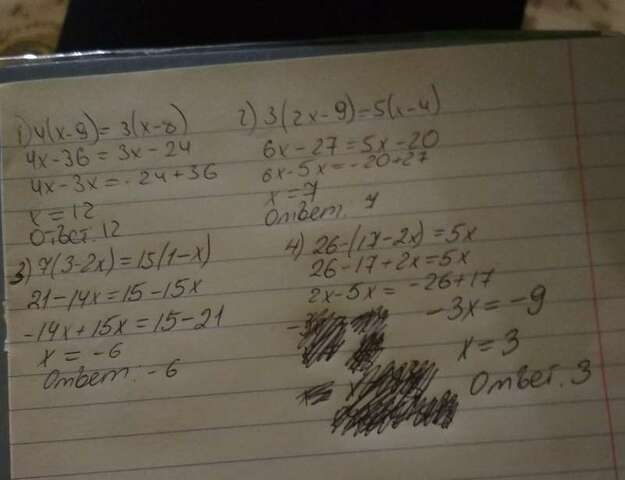 1) 4(x-9)=3(x-8)
4x-36=3x-24
4x-3x=-24+36
x=12
Ответ. 12
2) 3(2x-9)=5(x-4)
6x-27=5x-20
6x-5x=-20+27
x=7
Ответ. 7
3) 7(3-2x)=15(1-x)
21-14x=15-15x
-14x+15x=15-21
x=-6
Ответ. -6
4) 26-(17-2x)=5x
26-17+2x=5x
2x-5x=-26+17
-3x=-9
x=3
Ответ. 3